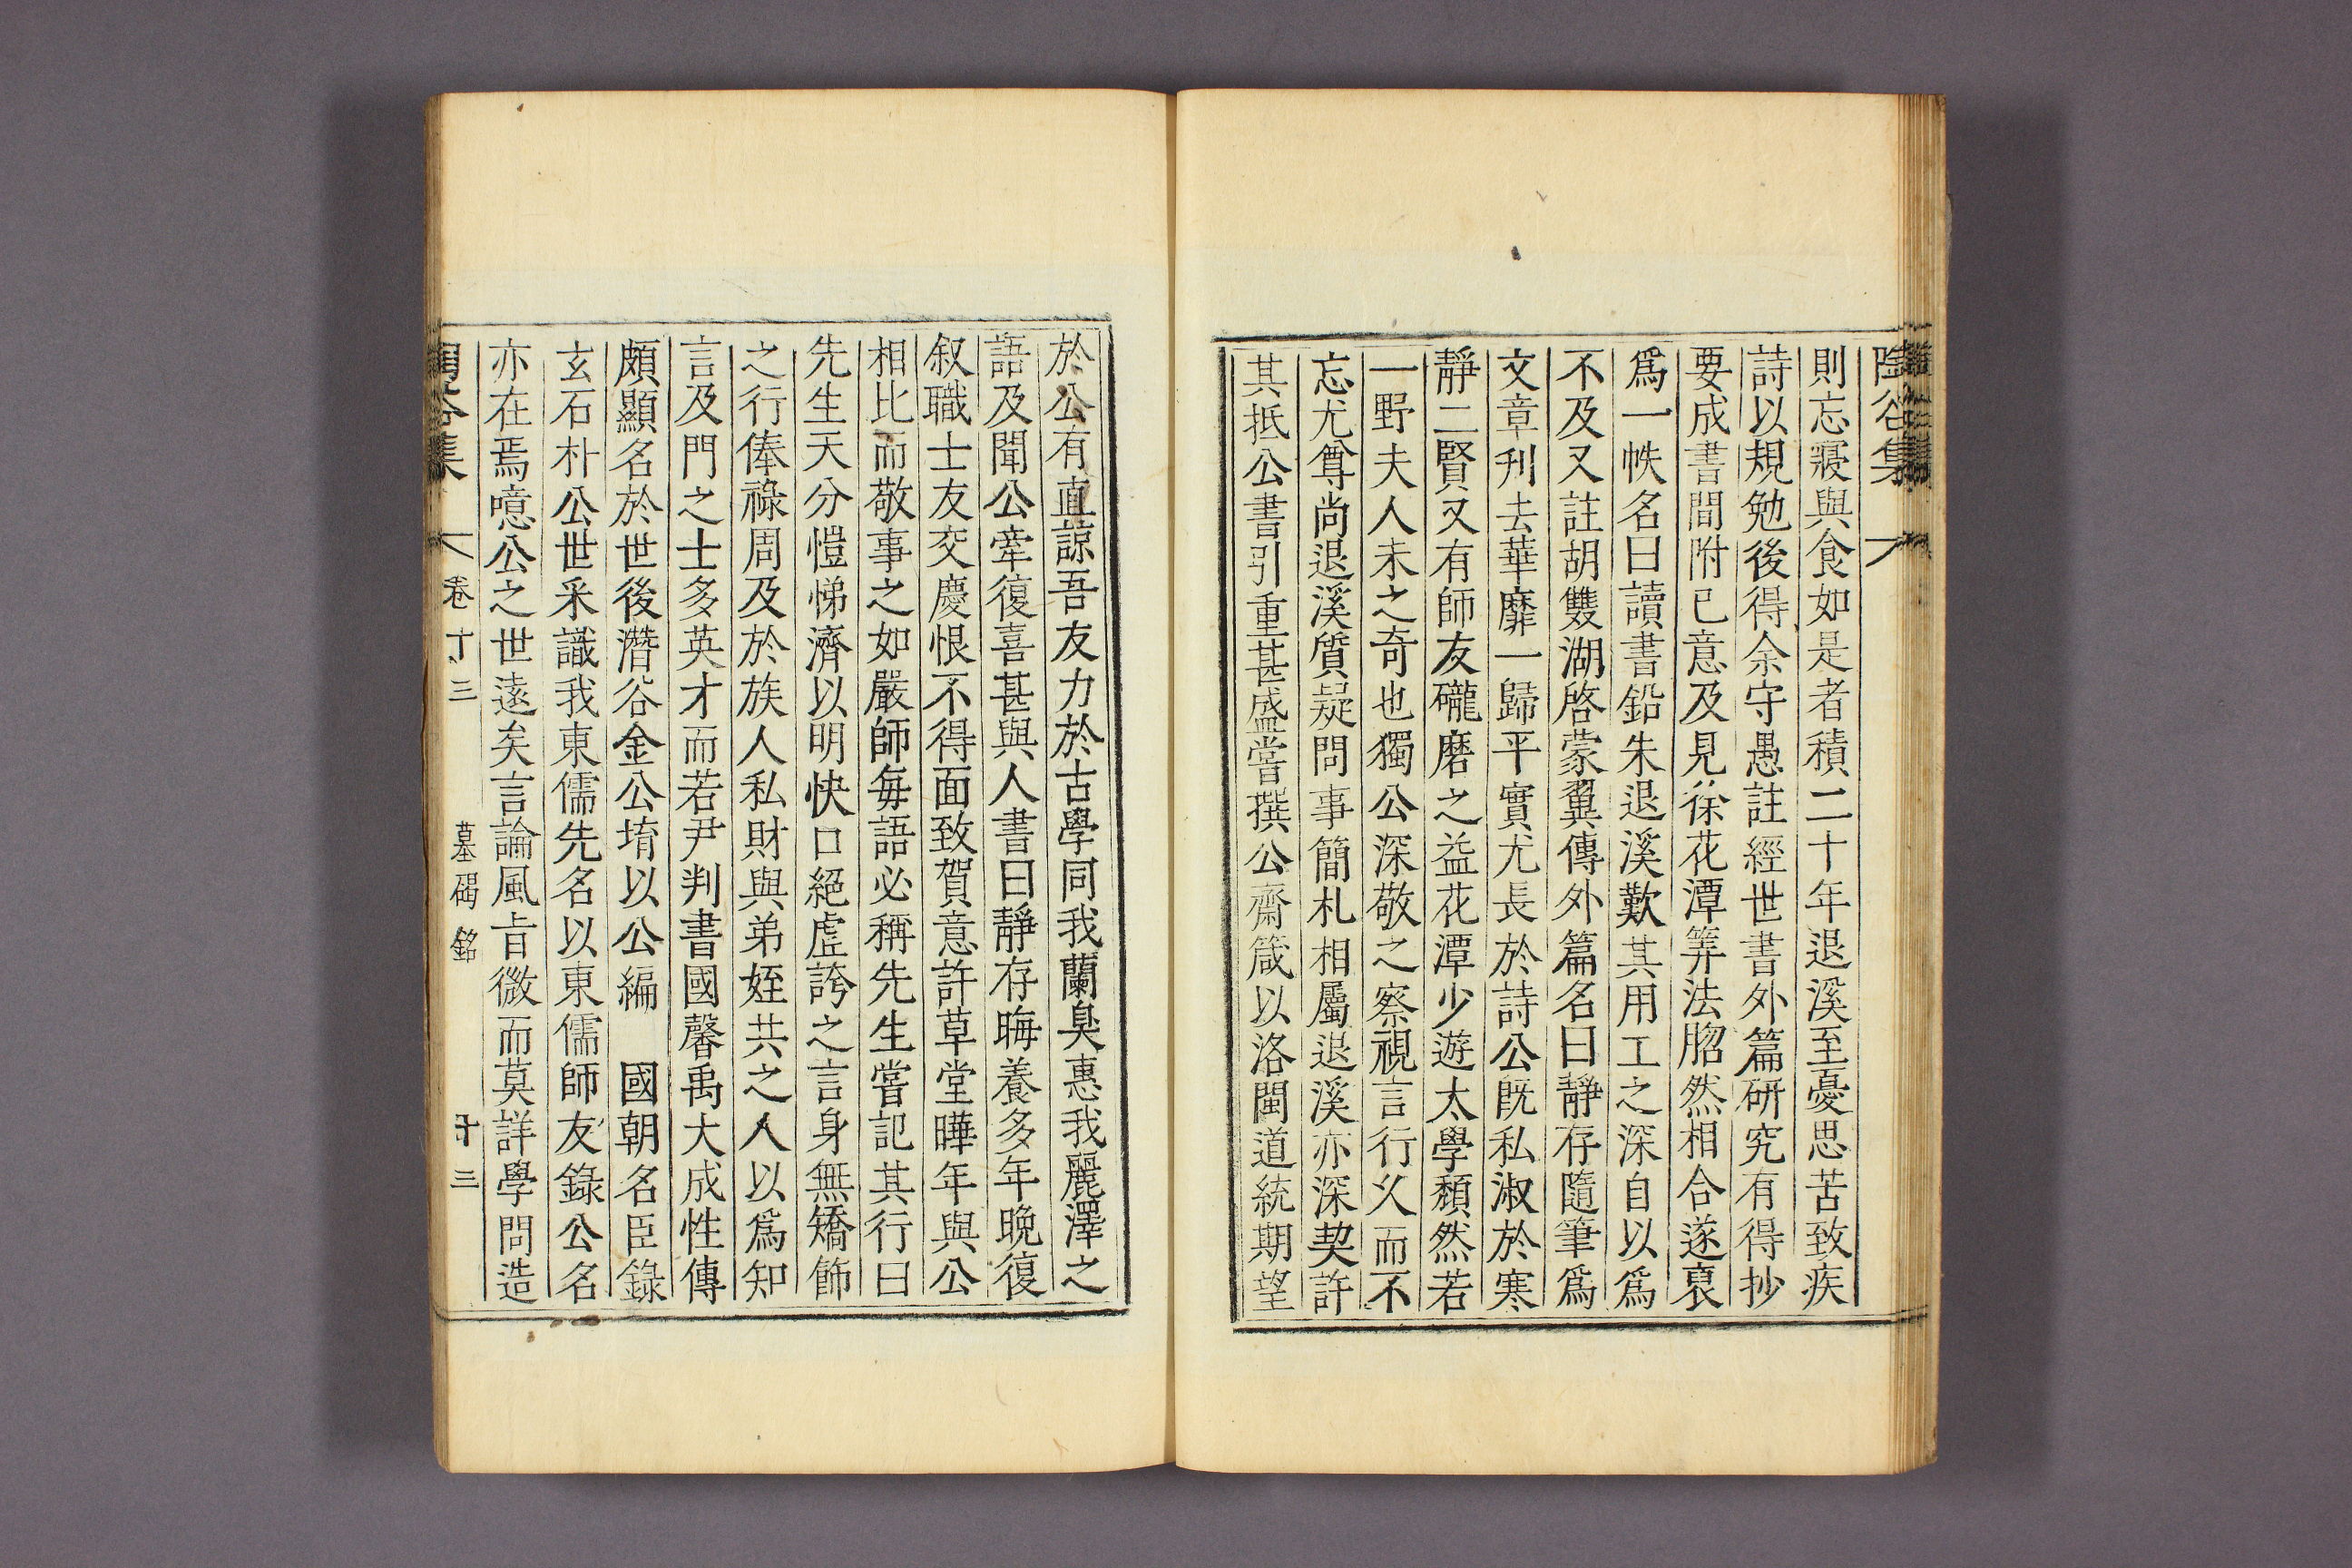 陶谷集
則忘寢與食如是者積二十年退溪至憂思苦致疾
詩以規勉後得余守愚註經世書外篇研究有得抄
要成書間附已意及見徐花潭筭法脗然相合遂裒
爲一帙名曰讀書鉛朱退溪歎其用工之深自以爲
不及又註胡雙湖啓蒙翼傳外篇名曰靜存隨筆爲
文章刊去華靡一歸平實尤長於詩公旣私淑於寒
靜二賢又有師友礲磨之益花潭少遊太學頹然若
一野夫人未之奇也獨公深敬之察視言行久而不
忘尤尊尙退溪質疑問事簡札相屬退溪亦深契許
其抵公書引重甚盛嘗撰公齋箴以洛閩道統期望
於公有直諒吾友力於古學同我蘭臭惠我麗澤之
語及聞公牽復喜甚與人書曰靜存晦養多年晩復
叙職士友交慶恨不得面致賀意許草堂曄年與公
相比而敬事之如嚴師每語必稱先生嘗記其行曰
先生天分愷悌濟以明快口絕虛誇之言身無矯飾
之行俸祿周及於族人私財與弟姪共之人以爲知
言及門之士多英才而若尹判書國馨禹大成性傳
頗顯名於世後潛谷金公堉以公編　國朝名臣錄
玄石朴公世采識我東儒先名以東儒師友錄公名
亦在焉噫公之世遠矣言論風旨微而莫詳學問造
陶谷集　卷十三　墓碣銘　十三